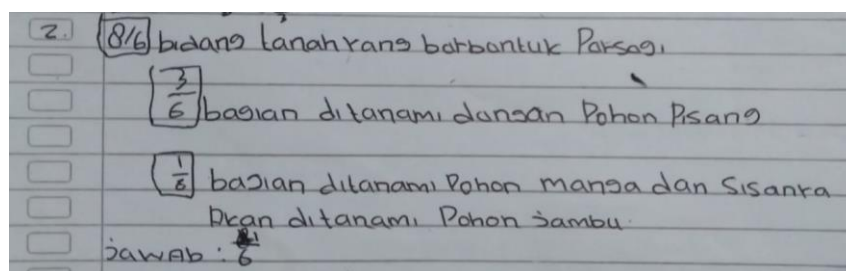 2. 8/6 bidang tanah yang berbentuk Persegi
3/6 bagian ditanami dengan Pohon Pisang
1/6 bagian ditanami Pohon mangga dan Sisanya
Akan ditanami Pohon jambu.
jawab : /6